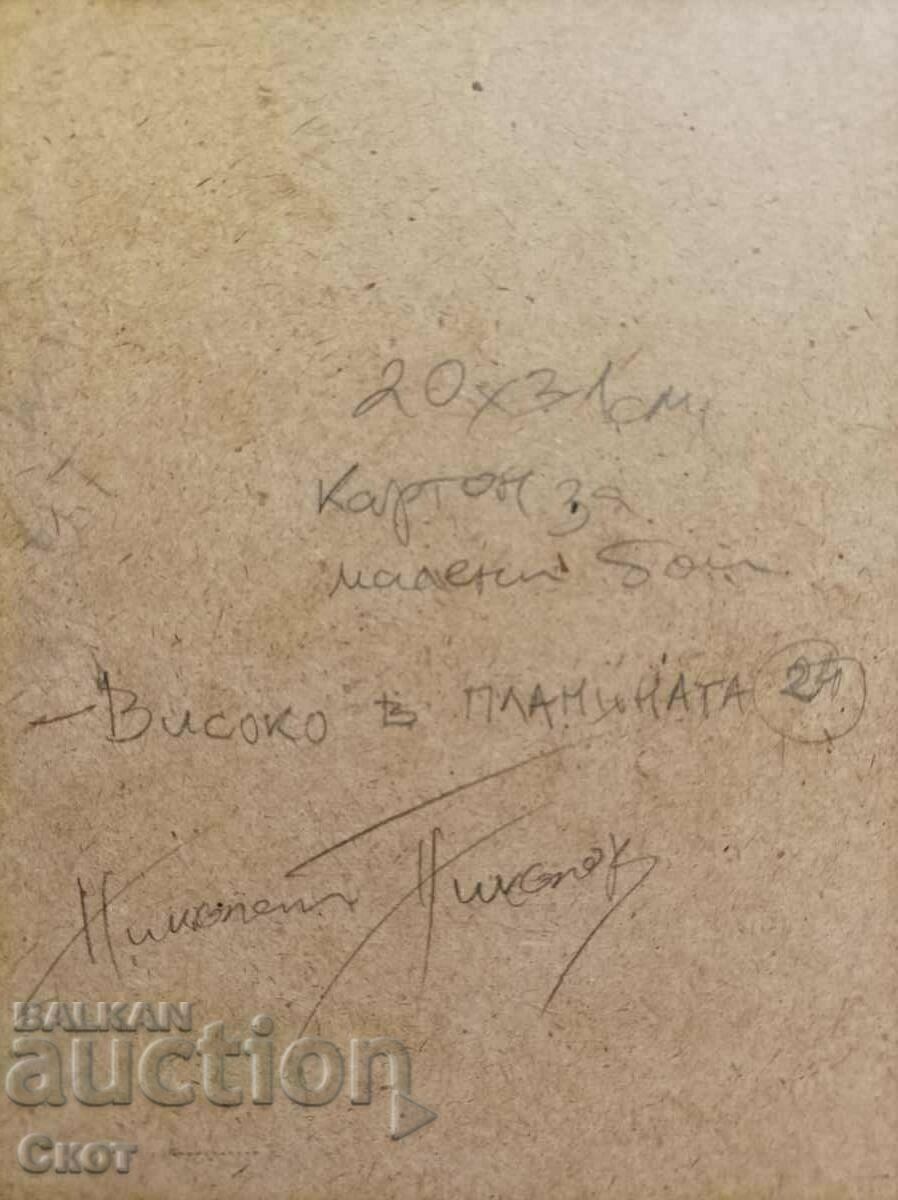 20x31см,
Картон за
маслени бои
- Високо в ПЛАНИНАТА 24
Николай Николов
BALKAN
auction
Скот